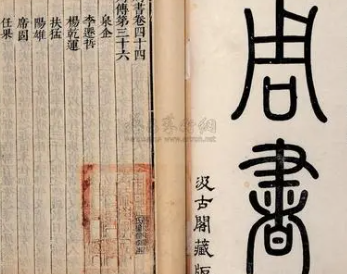 周書
汲古閣藏版
書卷四十四
傳第三十六
泉企
李遷哲
楊乾運
扶猛
陽雄
席固
任果